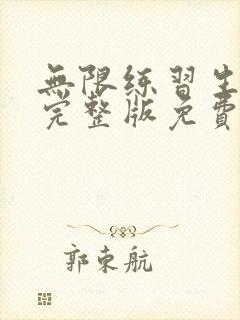 無限練習生
完整版免費
郭東航